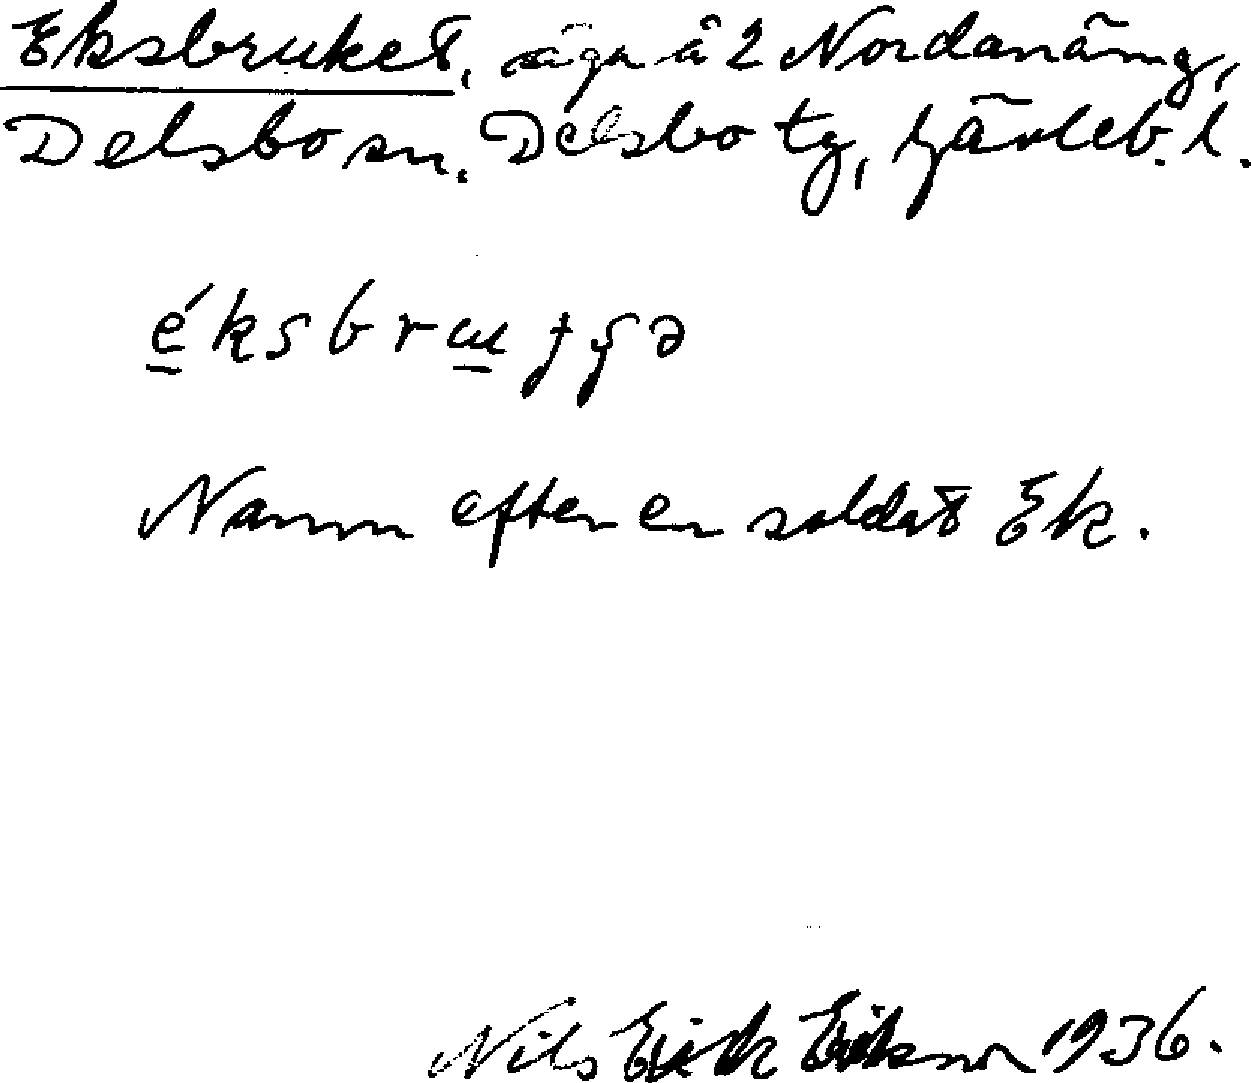 Eksbruket, äga å 2 Nordanäng,
Delsbo sn. Delsbo tg, Gävleb. l.
Namn efter en soldat Ek.
Nils Erik Erikson 1936.